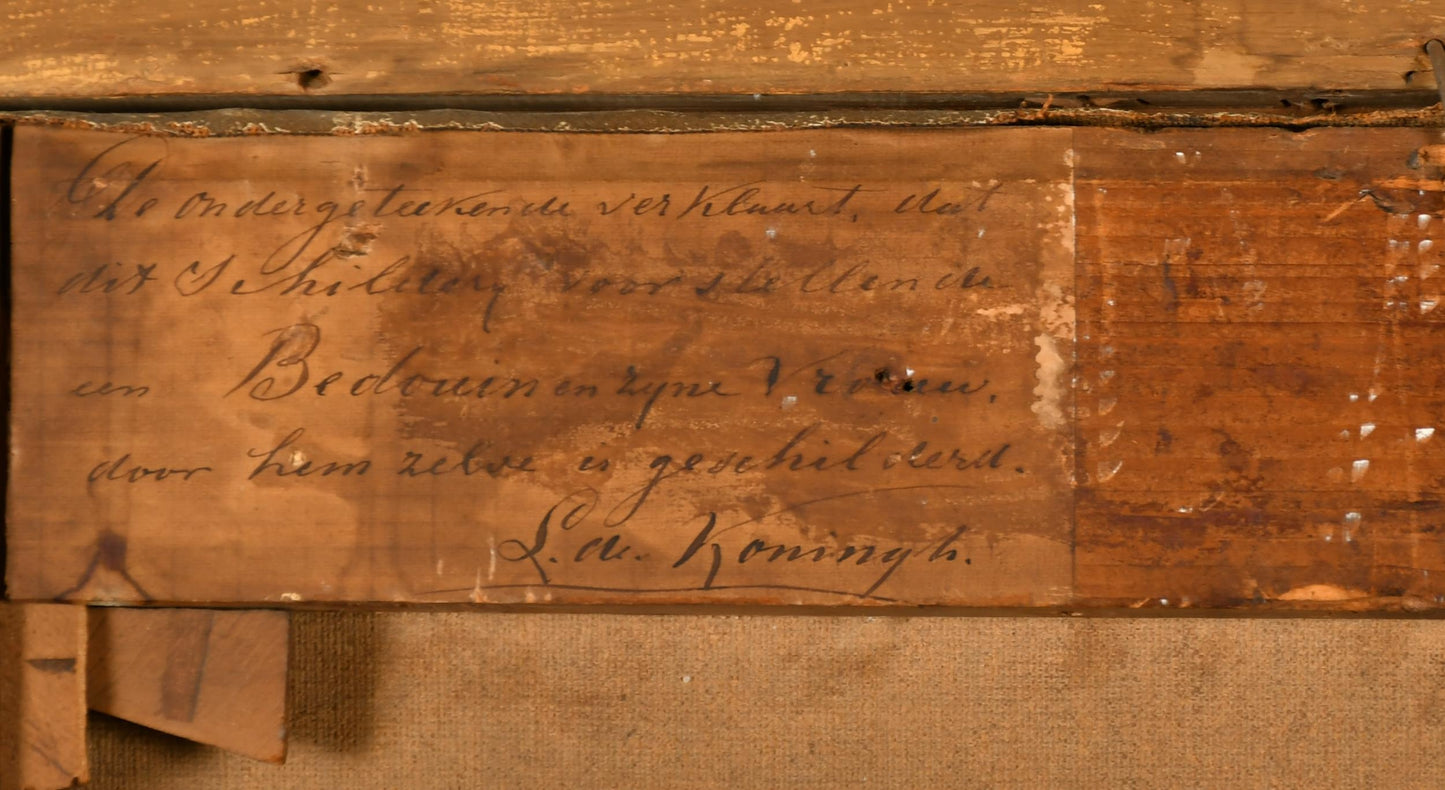 De ondergeteekende verklaart, dat
dit Schildery voorstellende
een Bedouin en zyne Vrouw,
door hem zelve is geschilderd.
L. de Koningh.